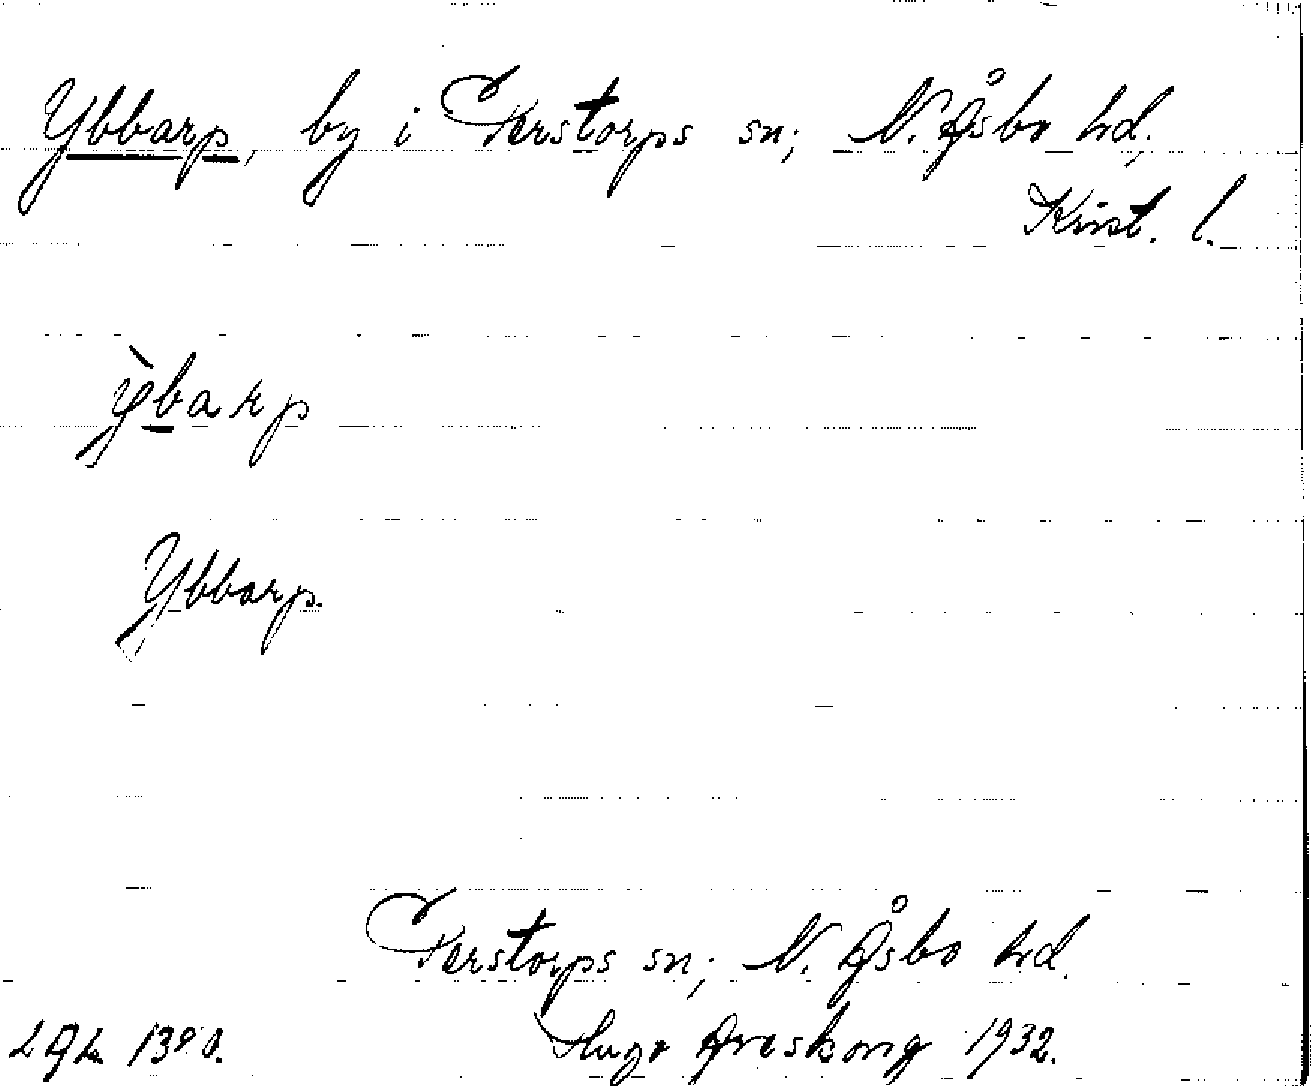 Ybbarp, by i Perstorps sn; N. Åsbo hd,
Krist. l.
ỳbarp
Ybbarp.
Perstorps sn; N. Åsbo hd.
Hugo Areskoug 1932.